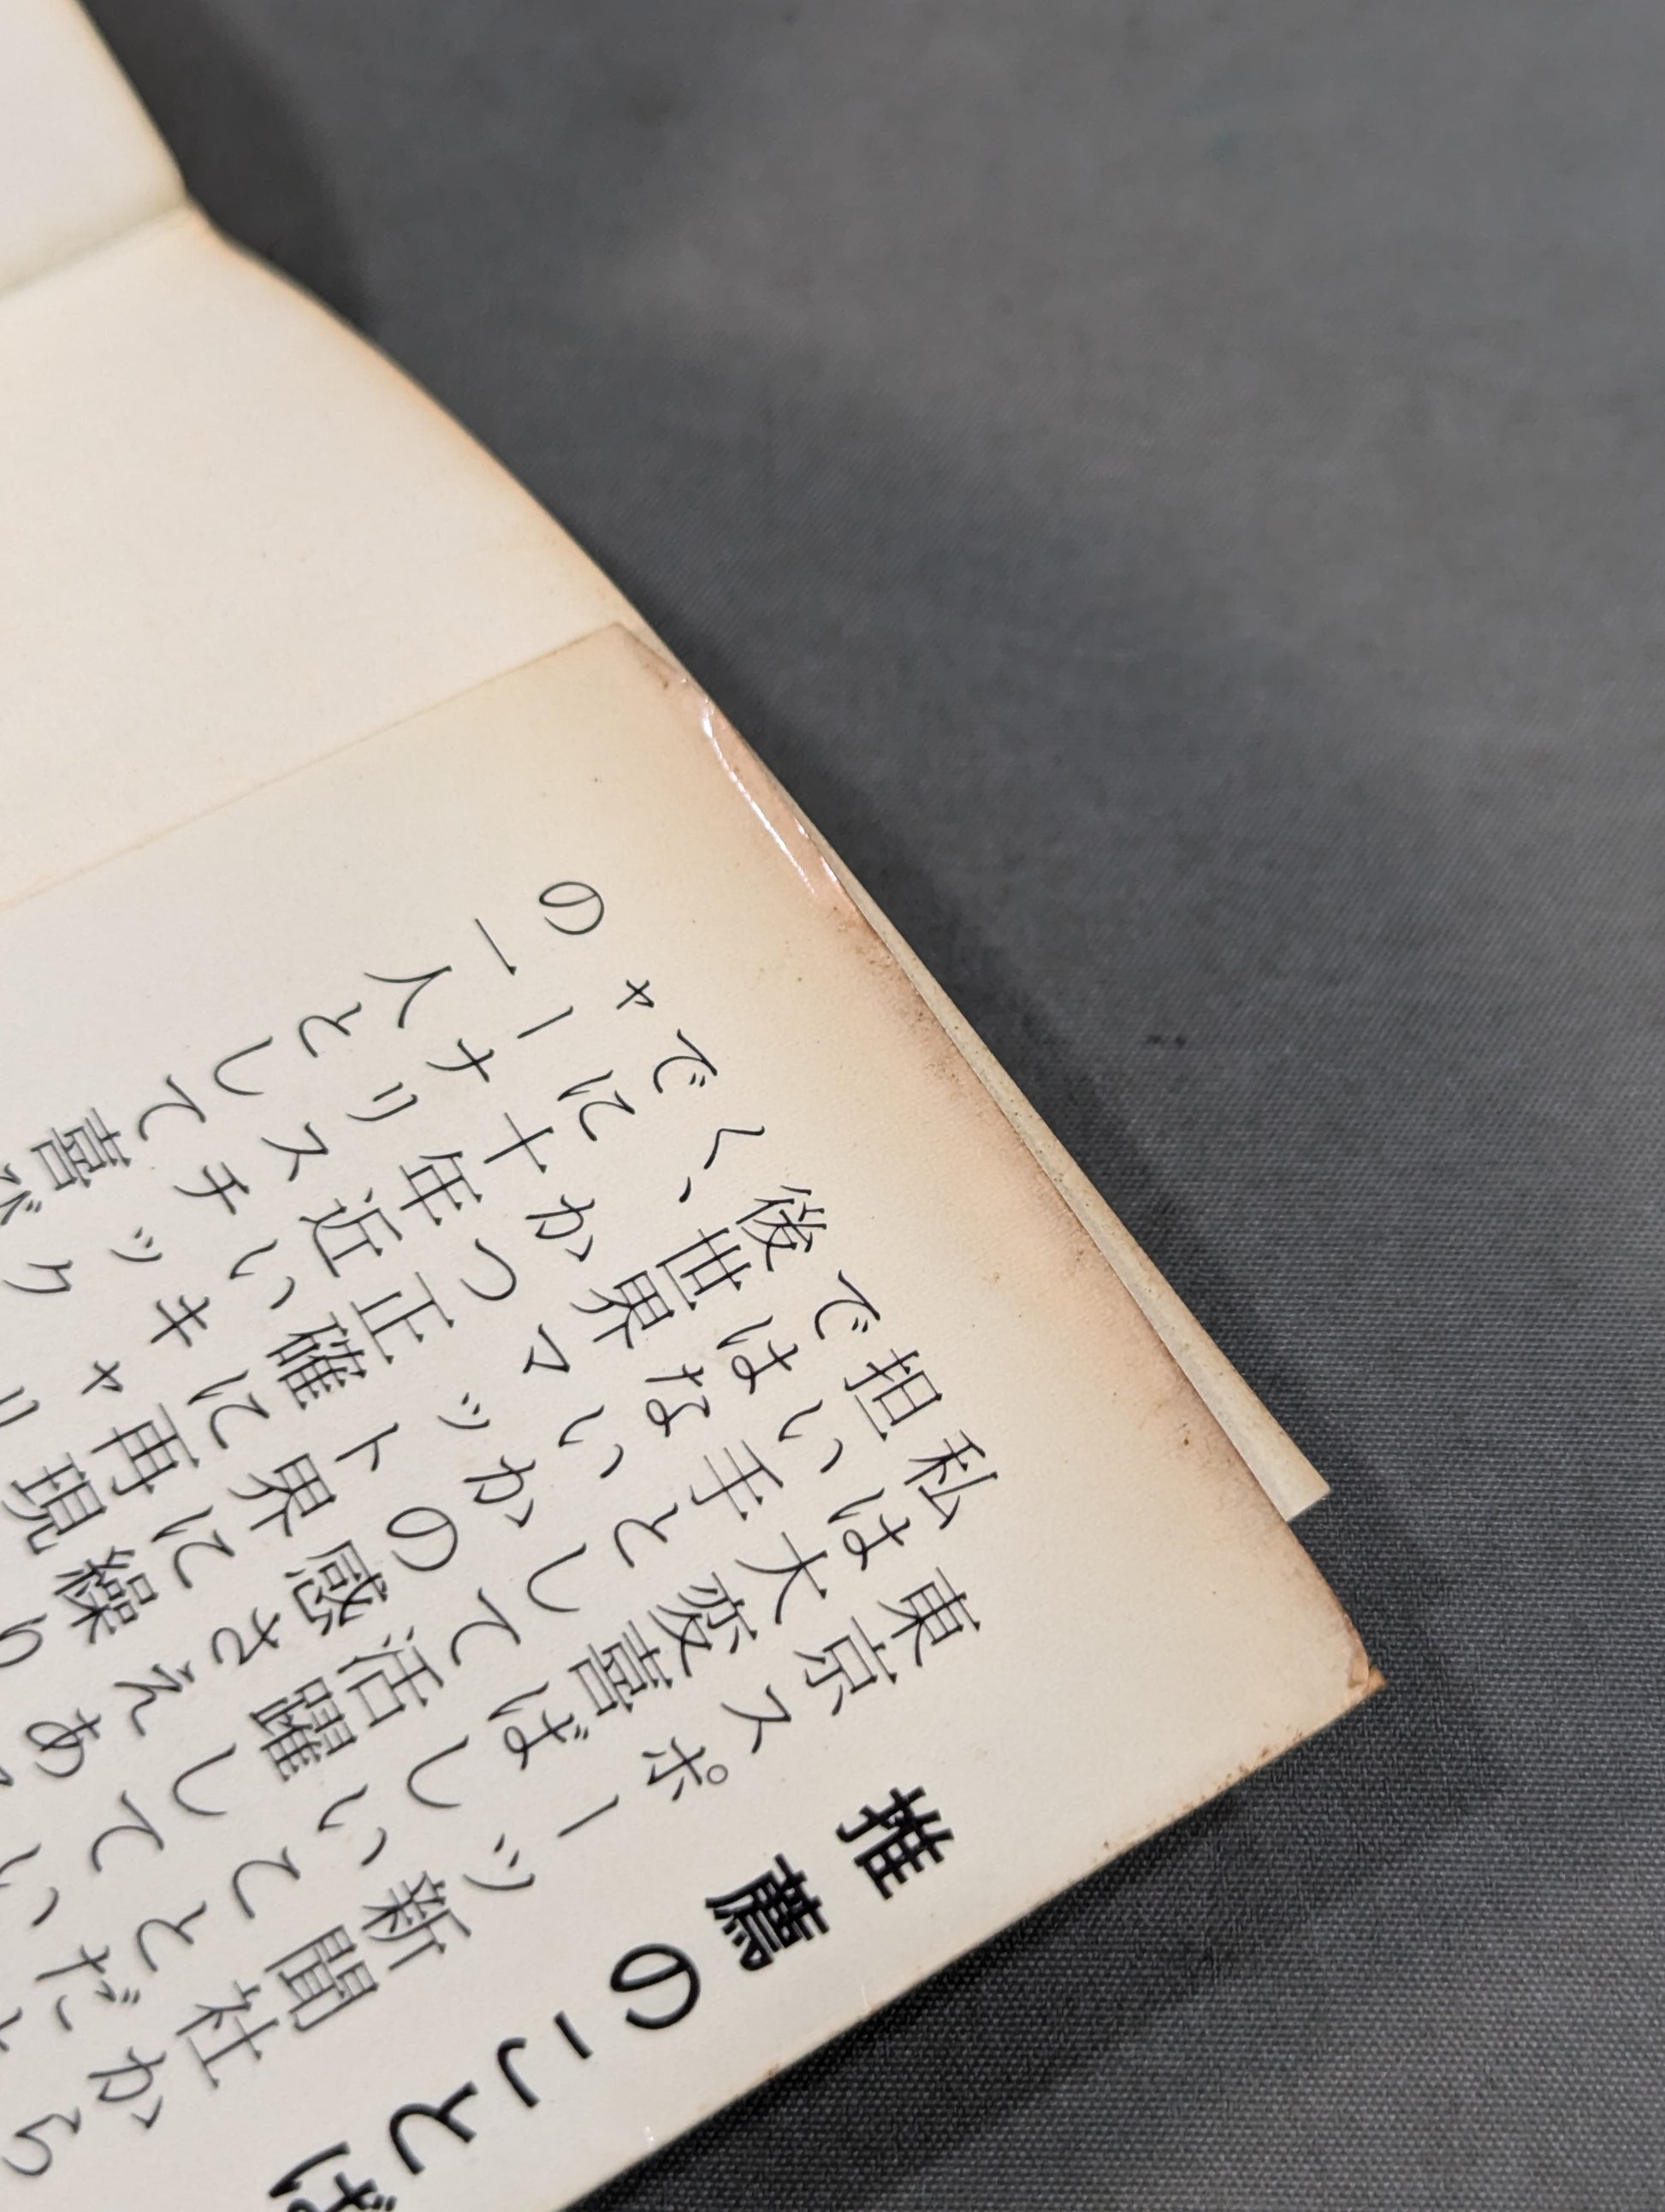 推薦のことば
東京スポーツ新聞社から
私は大変喜ばしいことだと
担い手として活躍してい
ではないかの感さえあ
後世界マット界に繰り
く、かつ正確に再現
でに十年近いキャリ
ャーナリスチック
の一人として喜ば